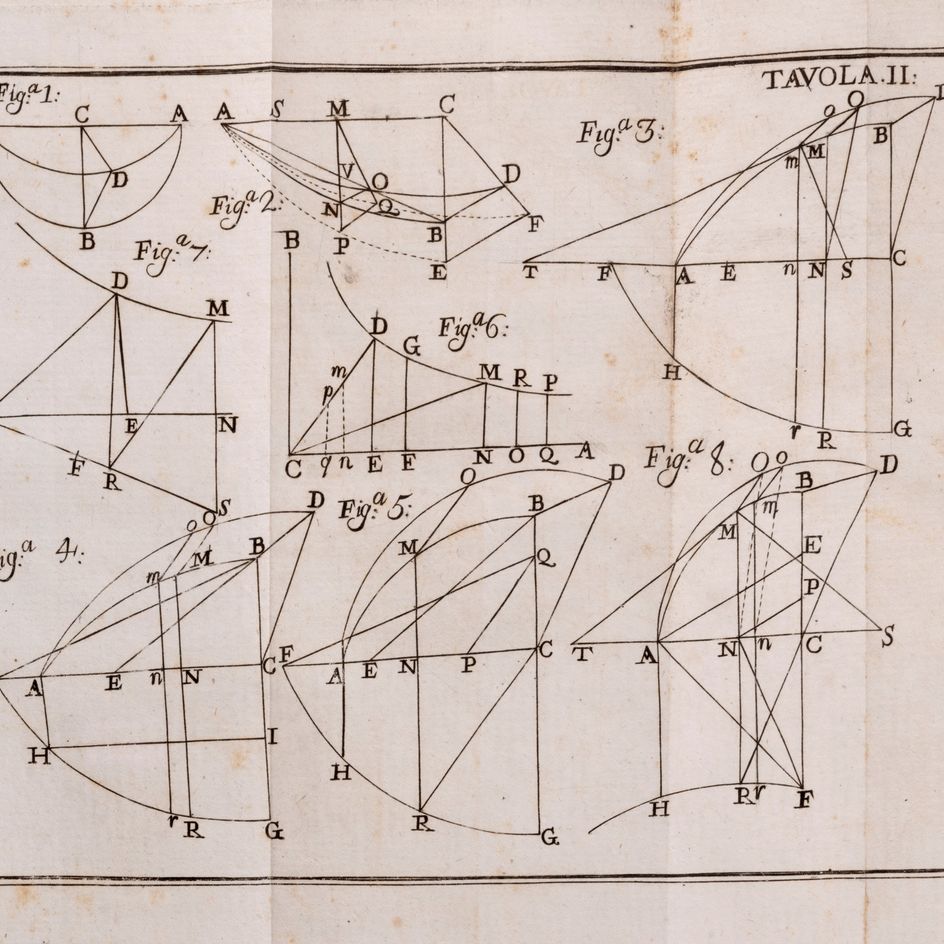 TAVOLA.II:
Fig.a 1:
C A
D
B
Fig.a 2:
A S M C
V O D
N Q F
P B
E
Fig.a 3:
o O
m M B
T F A E n N S C
H
r R G
Fig.a 7:
D M
E N
F R
S
Fig.a 6:
B
D G
m M R P
p
C q n E F N O Q A
Fig.a 4:
o O D
m M B
A E n N C
H I
r R G
Fig.a 5:
O D
M B
Q
F A E N P C
H
R G
Fig.a 8:
O o D
m B
M E
P
T A N n C S
H R r F